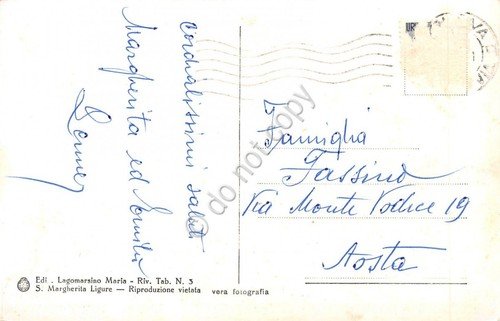 Cordialissimi saluti
Margherita ed Emilio
Famiglia
Fassino
Via Monte Vodice 19
Aosta
Edi. Lagomarsino Maria - Riv. Tab. N. 3
S. Margherita Ligure — Riproduzione vietata vera fotografia
© do not copy